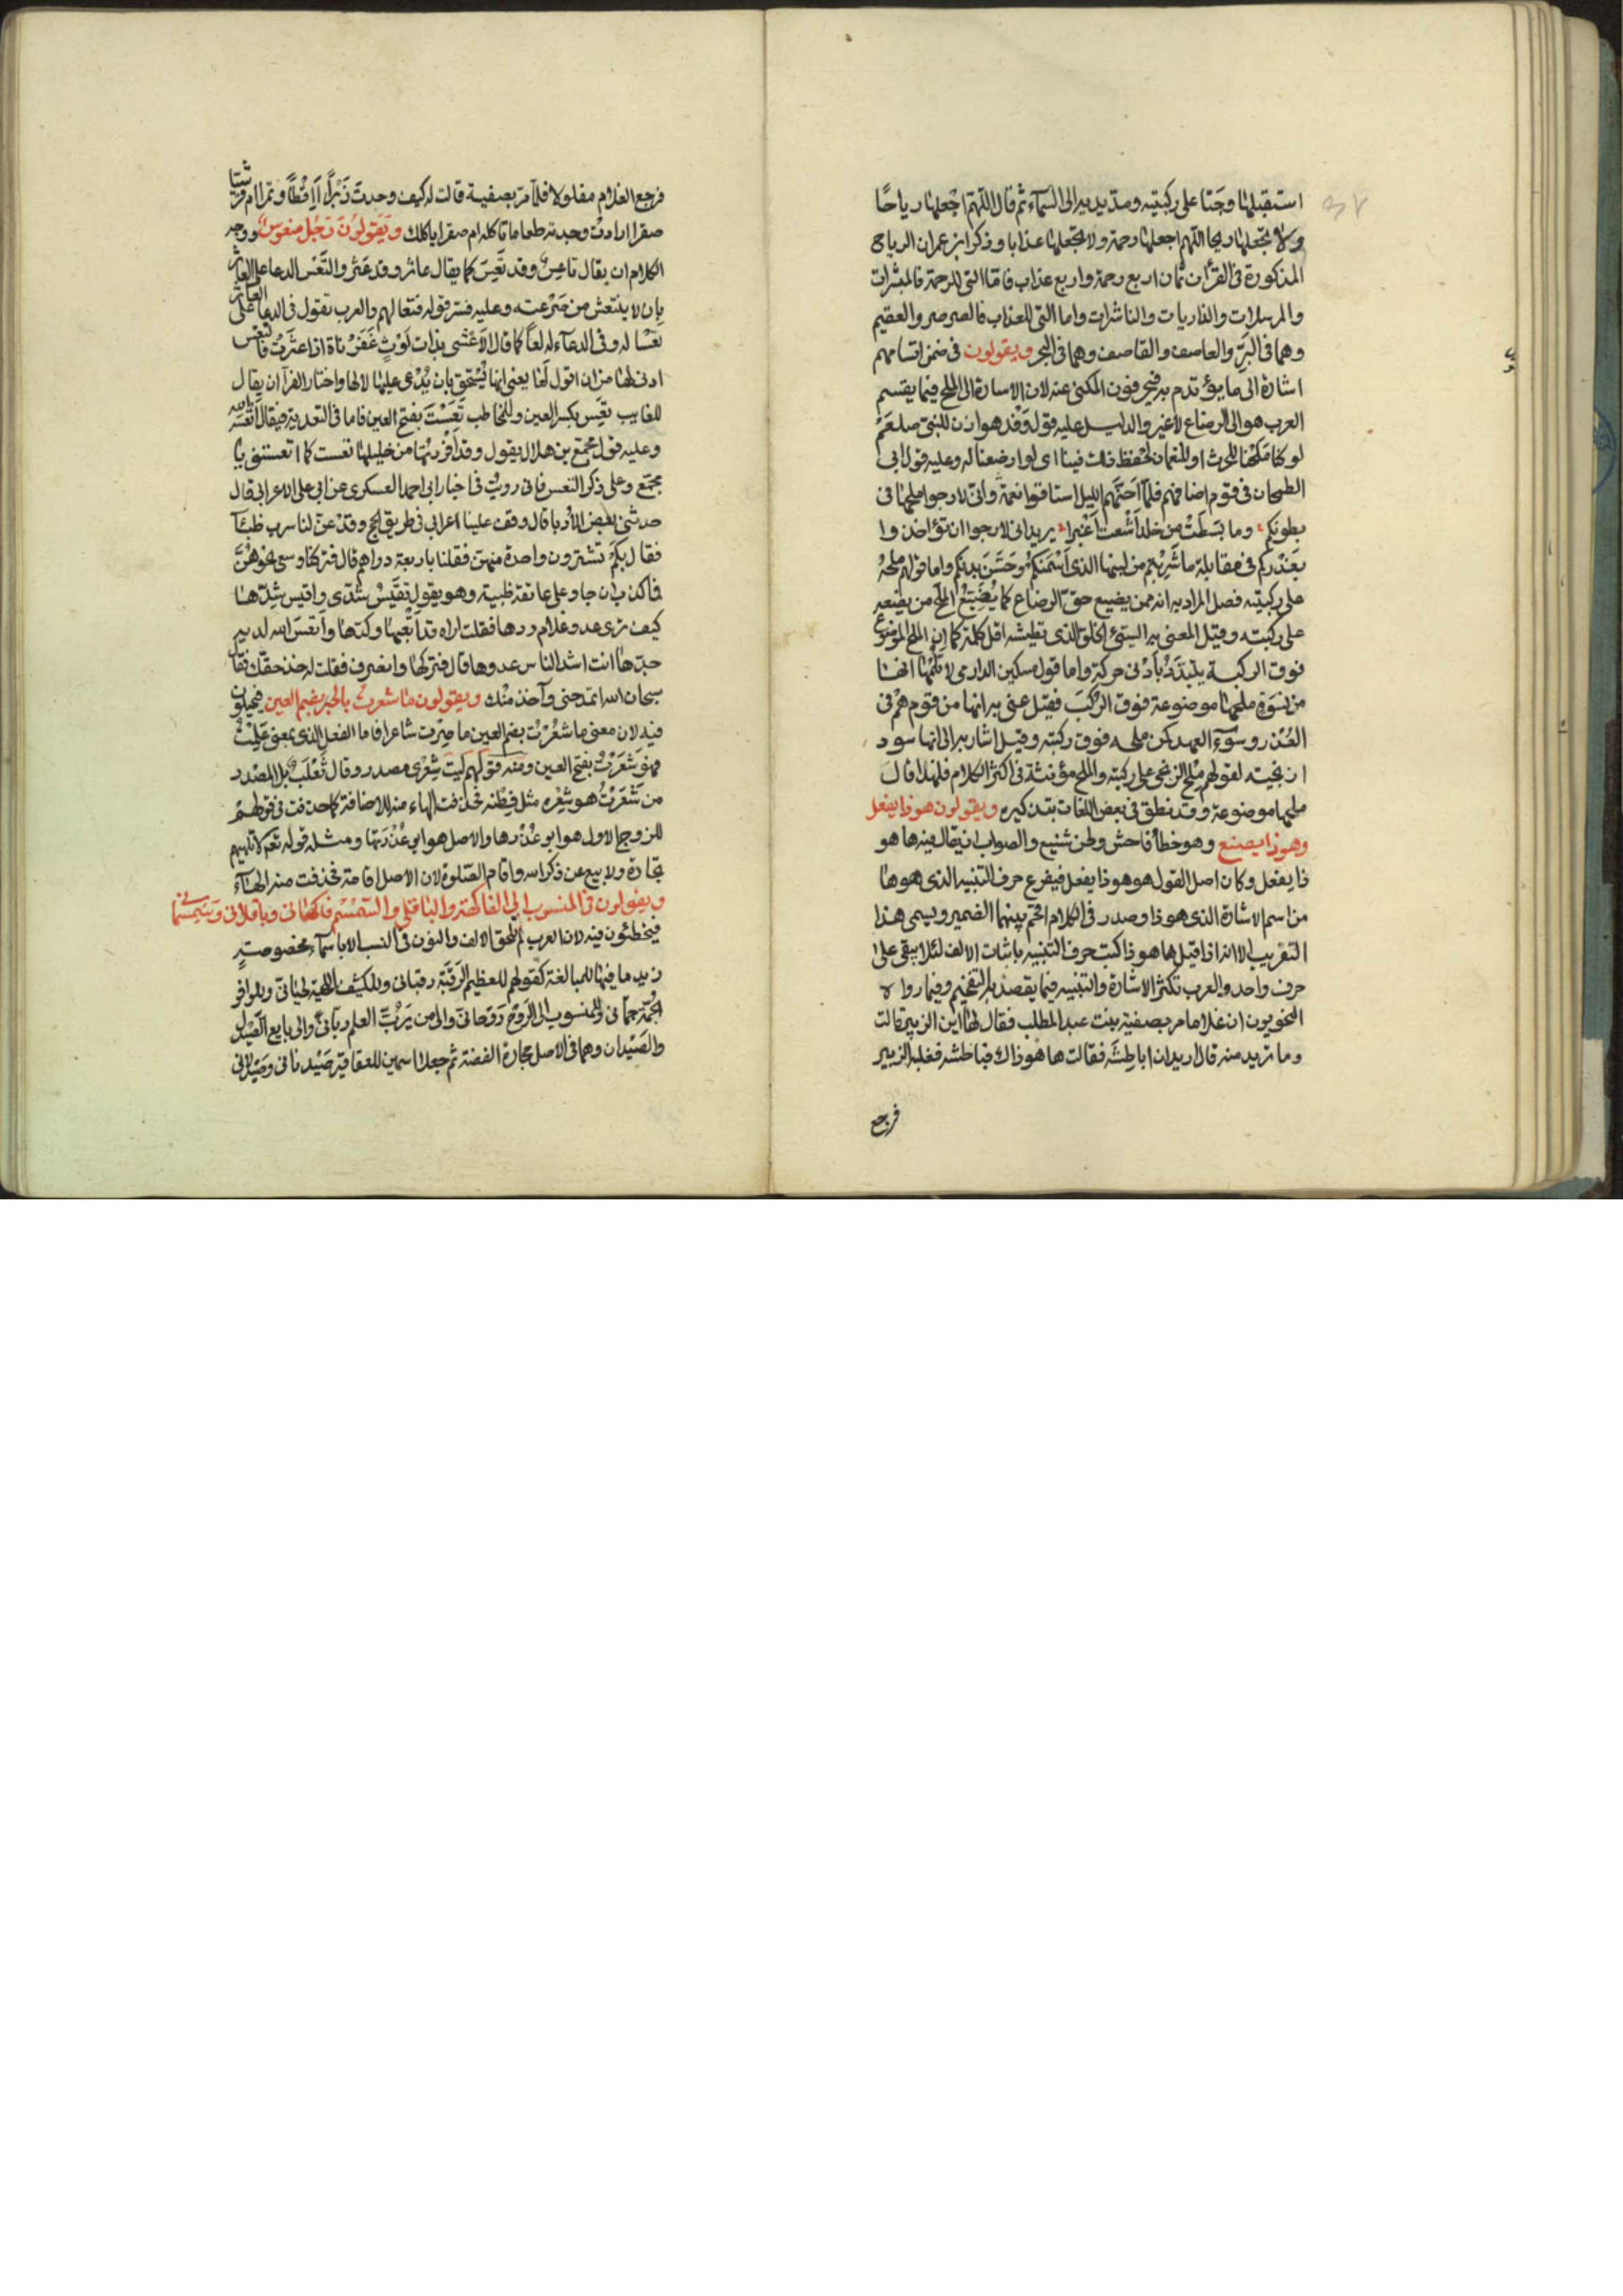 استقبلها وجثا على ركبتيه ومدّ يديه الى السمآء ثم قال اللهم اجعلها رياحًا
ولا تجعلها ريحا اللهم اجعلها رحمة ولا تجعلها عذابا وذكر ابن عمر ان الرياح
المذكورة فى القرآن ثمان اربع رحمة واربع عذاب فاما التى للرحمة فالمبشرات
والمرسلات والذاريات والناشرات واما التى للعذاب فالصرصر والعقيم
وهما فى البرّ والعاصف والقاصف وهما فى البحر ويقولون فى ضمن اقسامهم
اشارة الى ما يؤتدم به فيحرفون المكنى عنه لان الاشارة الى الملح فيما يقسم
العرب هو الى الرضاع لا غير والدليل عليه قول وفد هوازن للنبى صلعم
لو كنا ملحنا للحرث او للنعمان لحفظ ذلك فينا اى لو ارضعنا له وعليه قول ابى
الطمحان فى قوم اضافهم فلما اجنّهم الليل استاقوا نعمه وانى لارجوا ملحها فى
بطونكم وما بسطت من جلد اشعث اغبرا يريد انى لارجوا ان تؤاخذوا
بغدركم فى مقابلة ما شربتم من لبنها الذى اسمنكم وحسّن بدنكم واما قولهم ملحه
على ركبتيه فصل المراد به انه ممن يضيع حق الرضاع كما يضيع الملح من يضعه
على ركبته وقيل المعنى به السيئ الخلق الذى تطيشه اقل كلمة كما ان الملح الموضوع
فوق الركبة يتبدّد بادنى حركة واما قول مسكين الدارمى لا تلمها انها
من نسوة ملحها موضوعة فوق الركب فقيل عنى به انها من قوم هم فى
الغدر وسوء العهد كمن ملحه فوق ركبته وقيل اشار به الى انها سود
ا زنجيته لقولهم ملح الزنجى على ركبته والملح مؤنثة فى اكثر الكلام فلهذا قال
ملحها موضوعة وقد نطق فى بعض اللغات بتذكيره ويقولون هوذا يفعل
وهوذا يصنع وهو خطأ فاحش ولحن شنيع والصواب ان يقال فيه ها هو
ذا يفعل وكان اصل القول هو هوذا يفعل فيفرع حرف التنبيه الذى هو ها
من اسم الاشارة الذى هو ذا وصدر فى الكلام اقحم بينهما الضمير ويسمى هذا
التقريب الا انه اذا قيل ها هو ذا كتبت حرف التنبيه باثبات الالف لئلا يبقى على
حرف واحد والعرب تكثر الاشارة والتنبيه فيما يقصد به التفخيم وفيما رواه
النحويون ان غلاما مر بصفية بنت عبد المطلب فقال لها اين الزبير قالت
وما تريد منه قال اريد ان اباطشه فقالت ها هو ذاك فباطشه فغلبه الزبير
فرجع
فرجع الغلام مفلولا فلما مرّ بصفية قالت له كيف وجدت زبرا أاقطا وتمرا ام قرشيا
صقرا ارادت وجدته طعاما تاكله ام صقرا ياكلك ويقولون رجل منعوس ووجه
الكلام ان يقال تاعس وقد تعس كما يقال عاثر وقد عثر والتعس الدعا على العاثر
بان لا ينتعش من صرعته وعليه فسر قوله فتعسا لهم والعرب تقول فى الدعا على العاثر
تعسا له وفى الدعآء له لعًا كما قال الاعشى بذات لوث عفرناة اذا عثرت فالتعس
ادنى لها من ان اقول لعا يعنى انها تستحق بان يدعى عليها لا لها واختار الفرآ ان يقال
للغايب تعس بكسر العين وللمخاطب تعست بفتح العين فاما فى التعدية فيقال اتعسه الله
وعليه قول مجمع بن هلال يقول وقد افردتها من خليلها تعست كما اتعستنى يا
مجمع وعلى ذكر التعس فانى رويت فى اخبار ابى احمد العسكرى عن ابى على الاعرابى قال
حدثنى بعض الادبا قال وقف علينا اعرابى فى طريق الحج وقد عنّ لنا سرب ظبآ
فقال بكم تشترون واحدة منهن فقلنا باربعة دراهم قال فتركنا وسعى نحوهن
فما كذب ان جا وعلى عاتقه ظبية وهو يقول تقيس شدّى واقيس شدّها
كيف ترى عدو غلام ردها فقلت اراه قد اتعبها وكدّها واتعس الله لديه
جدها انت اشد الناس عدوها قال فتركها وانصرف فقلت له خذ حقك فقال
سبحان الله اتمدحنى وآخذ منك ويقولون ما شعرت بالخبر بضم العين فيحيلون
فيه لان معنى ما شعرت بضم العين ما صرت شاعرا فاما الفعل الذى بمعنى علمت
فهو شعرت بفتح العين ومنه قولهم ليت شعرى مصدر وقال ثعلب بل المصدر
من شعرت هو شعره مثل فطنه فحذفت الهاء منه للاضافة كما حذفت فى قولهم
للزوج الاول هو ابو عذرها والاصل هو ابو عذرتها ومثله قوله تعه لا تلهيهم
تجارة ولا بيع عن ذكر الله واقام الصلوة لان الاصل اقامة فحذفت منه الهآء
ويقولون فى المنسوب الى الفاكهة والباقلى والسمسم فاكهانى وباقلانى وسمسمانى
فيخطئون فيه لان العرب لم تلحق الالف والنون فى النسب الا باسمآء مخصوصة
زيد ما فيها للمبالغة كقولهم للعظيم الرقبة رقبانى وللكثيف اللحية لحيانى وللوافر
الجمة جمانى وللمنسوب الى الروح روحانى والى من يربّ العلم ربّانى والى بايع الصيدل
والصيدان وهما فى الاصل حجارة الفضة ثم جعلا اسمين للعقاقير صيدنانى وصيدلانى